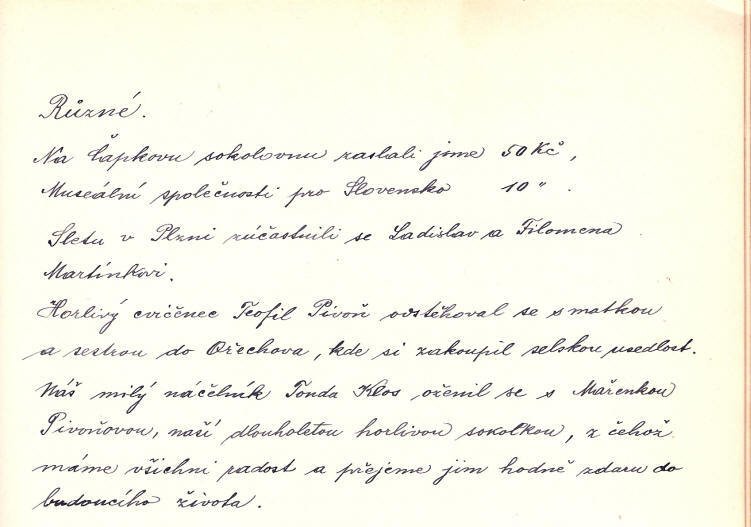 Různé.
Na Čapkovu sokolovnu zaslali jsme 50 Kč,
Museální společnosti pro Slovensko 10 " .
Sletu v Plzni zúčastnili se Ladislav a Filomena
Martínkovi.
Horlivý cvičenec Teofil Pivoň odstěhoval se s matkou
a sestrou do Ořechova, kde si zakoupil selskou usedlost.
Náš milý náčelník Tonda Klos oženil se s Mařenkou
Pivoňovou, naší dlouholetou horlivou sokolkou, z čehož
máme všichni radost a přejeme jim hodně zdaru do
budoucího života.